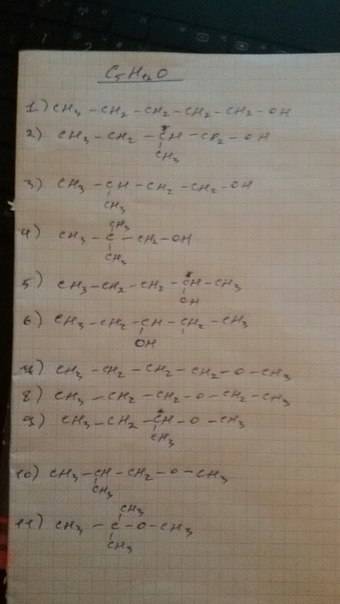 C5H12O
1) CH3 - CH2 - CH2 - CH2 - CH2 - OH
2) CH3 - CH2 - *CH - CH2 - OH
CH3
3) CH3 - CH - CH2 - CH2 - OH
CH3
CH3
4) CH3 - C - CH2 - OH
CH3
5) CH3 - CH2 - CH2 - *CH - CH3
OH
6) CH3 - CH2 - CH - CH2 - CH3
OH
7) CH3 - CH2 - CH2 - CH2 - O - CH3
8) CH3 - CH2 - CH2 - O - CH2 - CH3
9) CH3 - CH2 - *CH - O - CH3
CH3
10) CH3 - CH - CH2 - O - CH3
CH3
CH3
11) CH3 - C - O - CH3
CH3